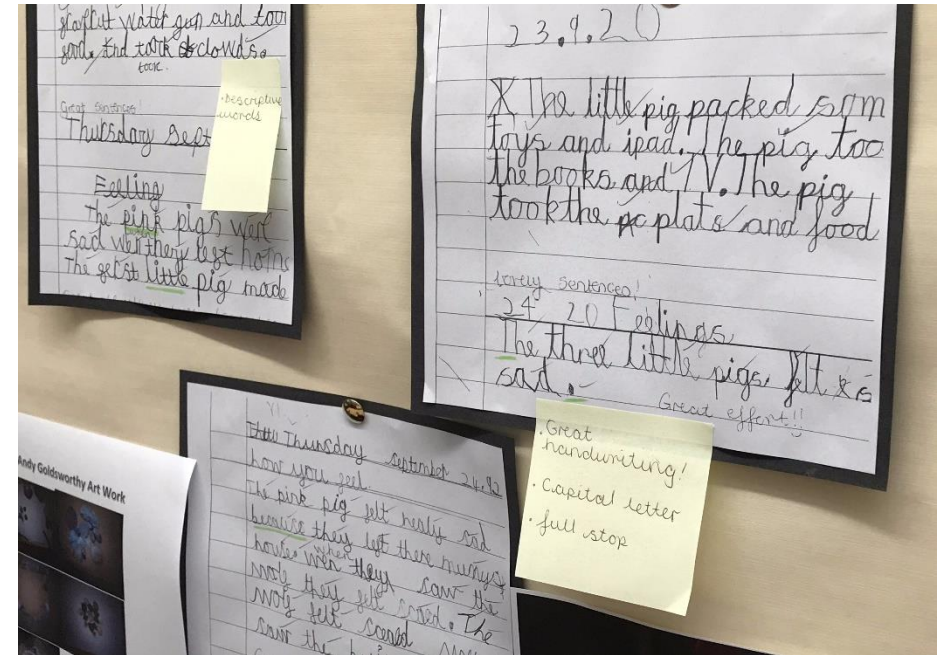 starfut water gun and too
food. And took clowds.
took.
Great sentences!
Thursday Sept
Feeling
The pink pigs wer
sad wen they left home
The pig little made
• Descriptive
words
23.9.20
X The little pig packed som
toys and ipad. The pig too
the books and TV. The pig
took the plats and food
lovely sentences!
24 20 Feelings
The three little pigs felt
sad.
Great effort!!
• Great
handwriting!
• Capital letter
• full stop
Thursday September 24.92
how you feel.
The pink pig felt realy sad
because they left there mumys
house. wen they saw the
when
wolf they felt scaed. The
wolf felt scaed
saw the
Andy Goldsworthy Art Work